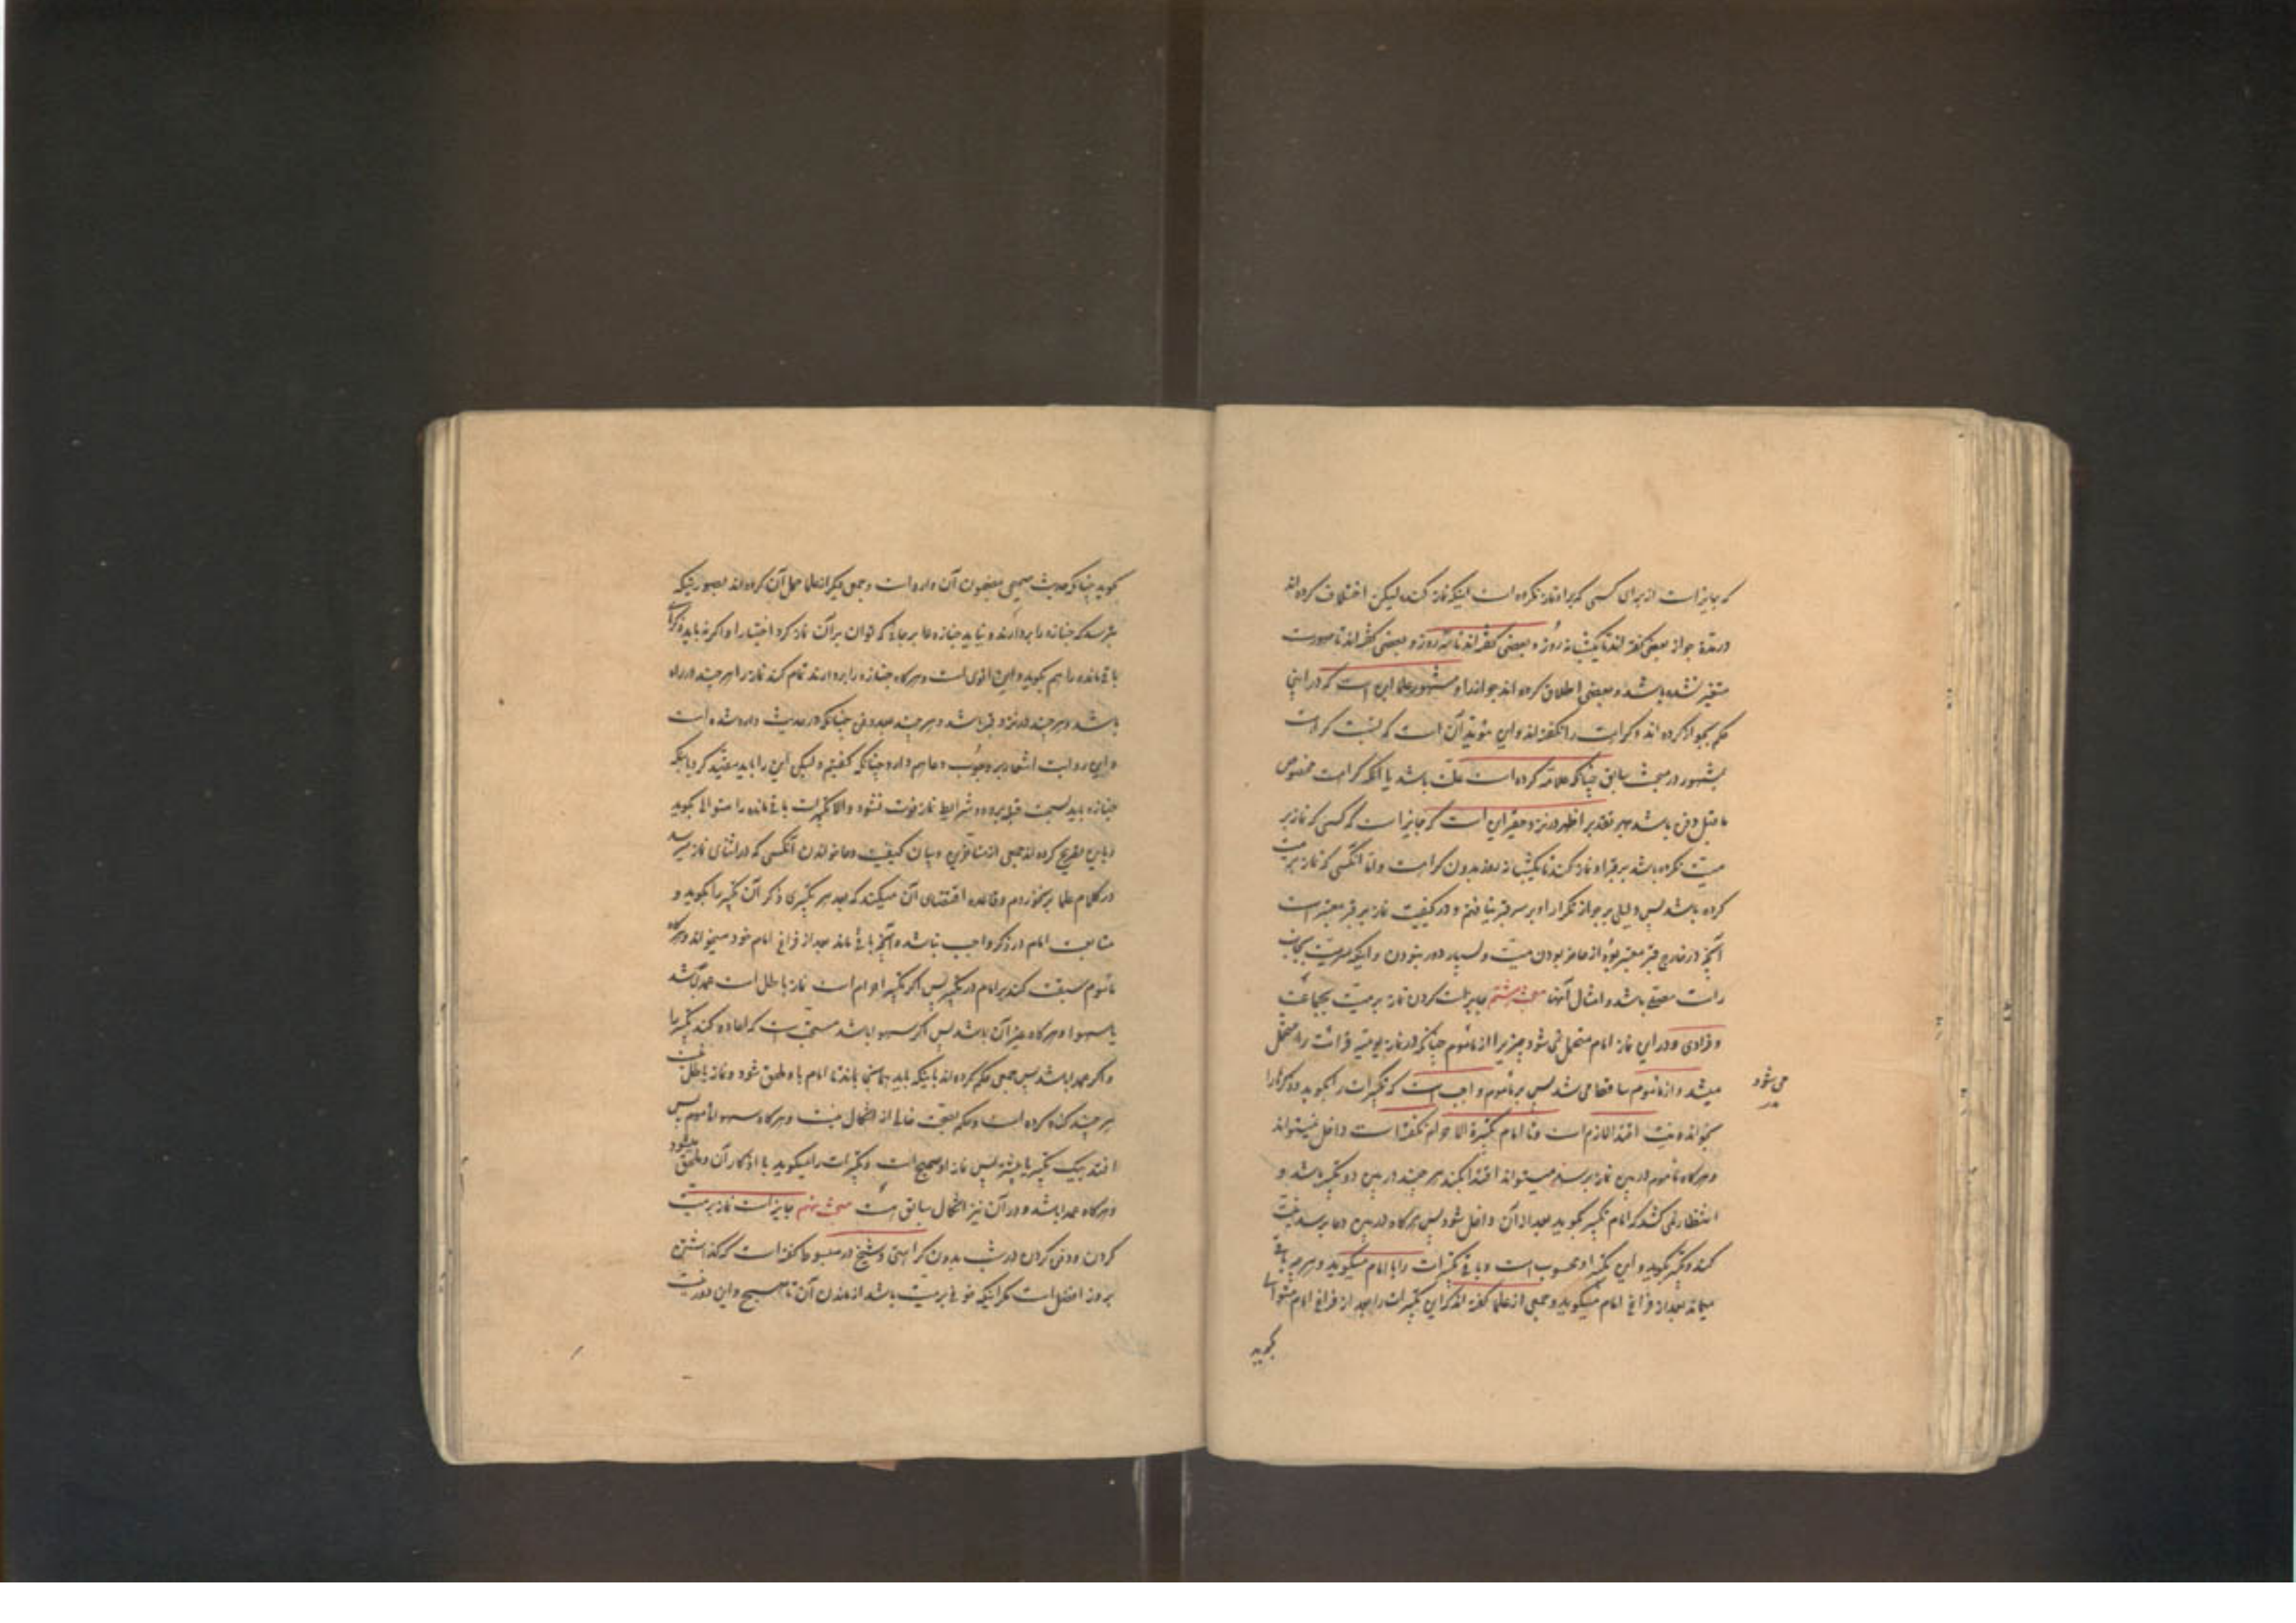 که جایز است از برای کسی که بر او نماز نکرده است اینکه نماز کند لیکن اختلاف کرده اند
در مدة جواز بعضی گفته اند تا یکشبانه روز و بعضی گفته اند تا سه روز و بعضی گفته اند تا صورت
متغیر نشده باشد و بعضی اطلاق کرده اند جواز را و مشهور علما این است که در این
حکم بجواز کرده اند و کراهت را نگفته اند و این مؤید آن است که نسبت کراهت
بمشهور در مبحث سابق چنانکه علامه کرده است غلت باشد یا آنکه کراهت مخصوص
ما قبل دفن باشد بهر تقدیر اظهر در نزد حقیر این است که جایز است که کسی که نماز بر
میت نکرده باشد بر قبر او نماز کند تا یکشبانه روز بدون کراهت و اما آنکسی که نماز بر میت
کرده باشد پس دلیلی بر جواز تکرار او بر سر قبر نیافتم و در کیفیت نماز بر قبر معتبر است
آنچه در خارج قبر معتبر بود از حاضر بودن میت و بسیار دور نبودن و اینکه سر میت بجانب
راست مصلی باشد و امثال آنها مبحث هشتم جایز است کردن نماز بر میت بجماعت
و فرادی و در این نماز امام متحمل نمی شود چیزیرا از مأموم چنانکه در نماز یومیه قرائت را متحمل
میشد و از مأموم ساقط می شد پس بر مأموم واجب است که تکبیرات را بگوید و ذکرها را
می شود
بخواند و نیت اقتدا لازم است و تا امام تکبیرة الاحرام نگفته است داخل نمیتواند
و هرگاه مأموم در بین نماز برسد میتواند اقتدا بکند هر چند در بین دو تکبیر باشد و
انتظار نمی کشد که امام تکبیر بگوید بعد از آن داخل شود پس هرگاه در بین دعا برسد نیت
کند و تکبیر بگوید و این تکبیر او محسوب است و باقی تکبیرات را با امام میگوید و هر چه باقی
میماند بعد از فراغ امام میگوید و جمعی از علما گفته اند که این تکبیرات را بعد از فراغ امام متوالی
بگوید
بگوید چنانکه حدیث صحیحی بمضمون آن وارد است و جمعی دیگر از علما حمل آن کرده اند بصورتیکه
بترسد که جنازه را بردارند و نیاید جنازه ها بر جائی که توان بر آن نماز کرد اختیارا و اگر نه باید ذکرهای
باقی مانده را هم بگوید و این اقوی است و هرگاه جنازه را بردارند تمام کند نماز را هر چند در راه
باشد و هر چند در نزد قبر باشد و هر چند بعد دفن چنانکه در حدیث وارد شده است
و این روایت اشعار بر وجوب دعا هم دارد چنانکه گفتیم و لیکن این را باید مقید کرد باینکه
جنازه باید بسمت قبله برود و شرایط نماز فوت نشود والا تکبیرات باقی مانده را متوالی بگوید
و باین تصریح کرده اند جمعی از متأخرین و بیان کیفیت دعا خواندن آنکسی که در اثنای نماز میرسد
در کلام علما برنخوردم و قاعده اقتضای آن میکند که بعد هر تکبیری ذکر آن تکبیر را بگوید و
متابعت امام در ذکر واجب نباشد و آنچه باقی ماند بعد از فراغ امام خود میخواند و هرگاه
مأموم سبقت کند بر امام در تکبیر پس اگر تکبیر احرام است نماز باطل است عمدا باشد
یا سهوا و هرگاه غیر آن باشد پس اگر سهوا باشد مستحب است که اعاده کند تکبیر را
و اگر عمدا باشد پس جمعی حکم کرده اند باینکه باید بماند تا امام باو ملحق شود و نماز باطل نیست
هر چند گناه کرده است و حکم بصحت خالی از اشکال نیست و هرگاه سهوا مأموم پس
افتد بیک تکبیر یا بیشتر پس نماز او صحیح است و تکبیرات را میگوید با اذکار آن و ملحق میشود
و هرگاه عمدا باشد و در آن نیز اشکال سابق هست مبحث نهم جایز است نماز بر میت
کردن و دفن کردن در شب بدون کراهتی و شیخ در مبسوط گفته است که گذاشتن
بروز افضل است مگر اینکه خوفی بر میت باشد از ماندن آن تا صبح و این دور نیست